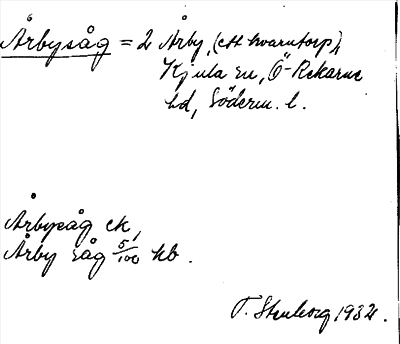 Årbysåg = 2 Årby, (ett kvarntorp),
Kjula sn, Ö-Rekarne
hd, Söderm. l.
Årbysåg ek,
Årby såg 5/100 kb.
F. Stenborg 1934.